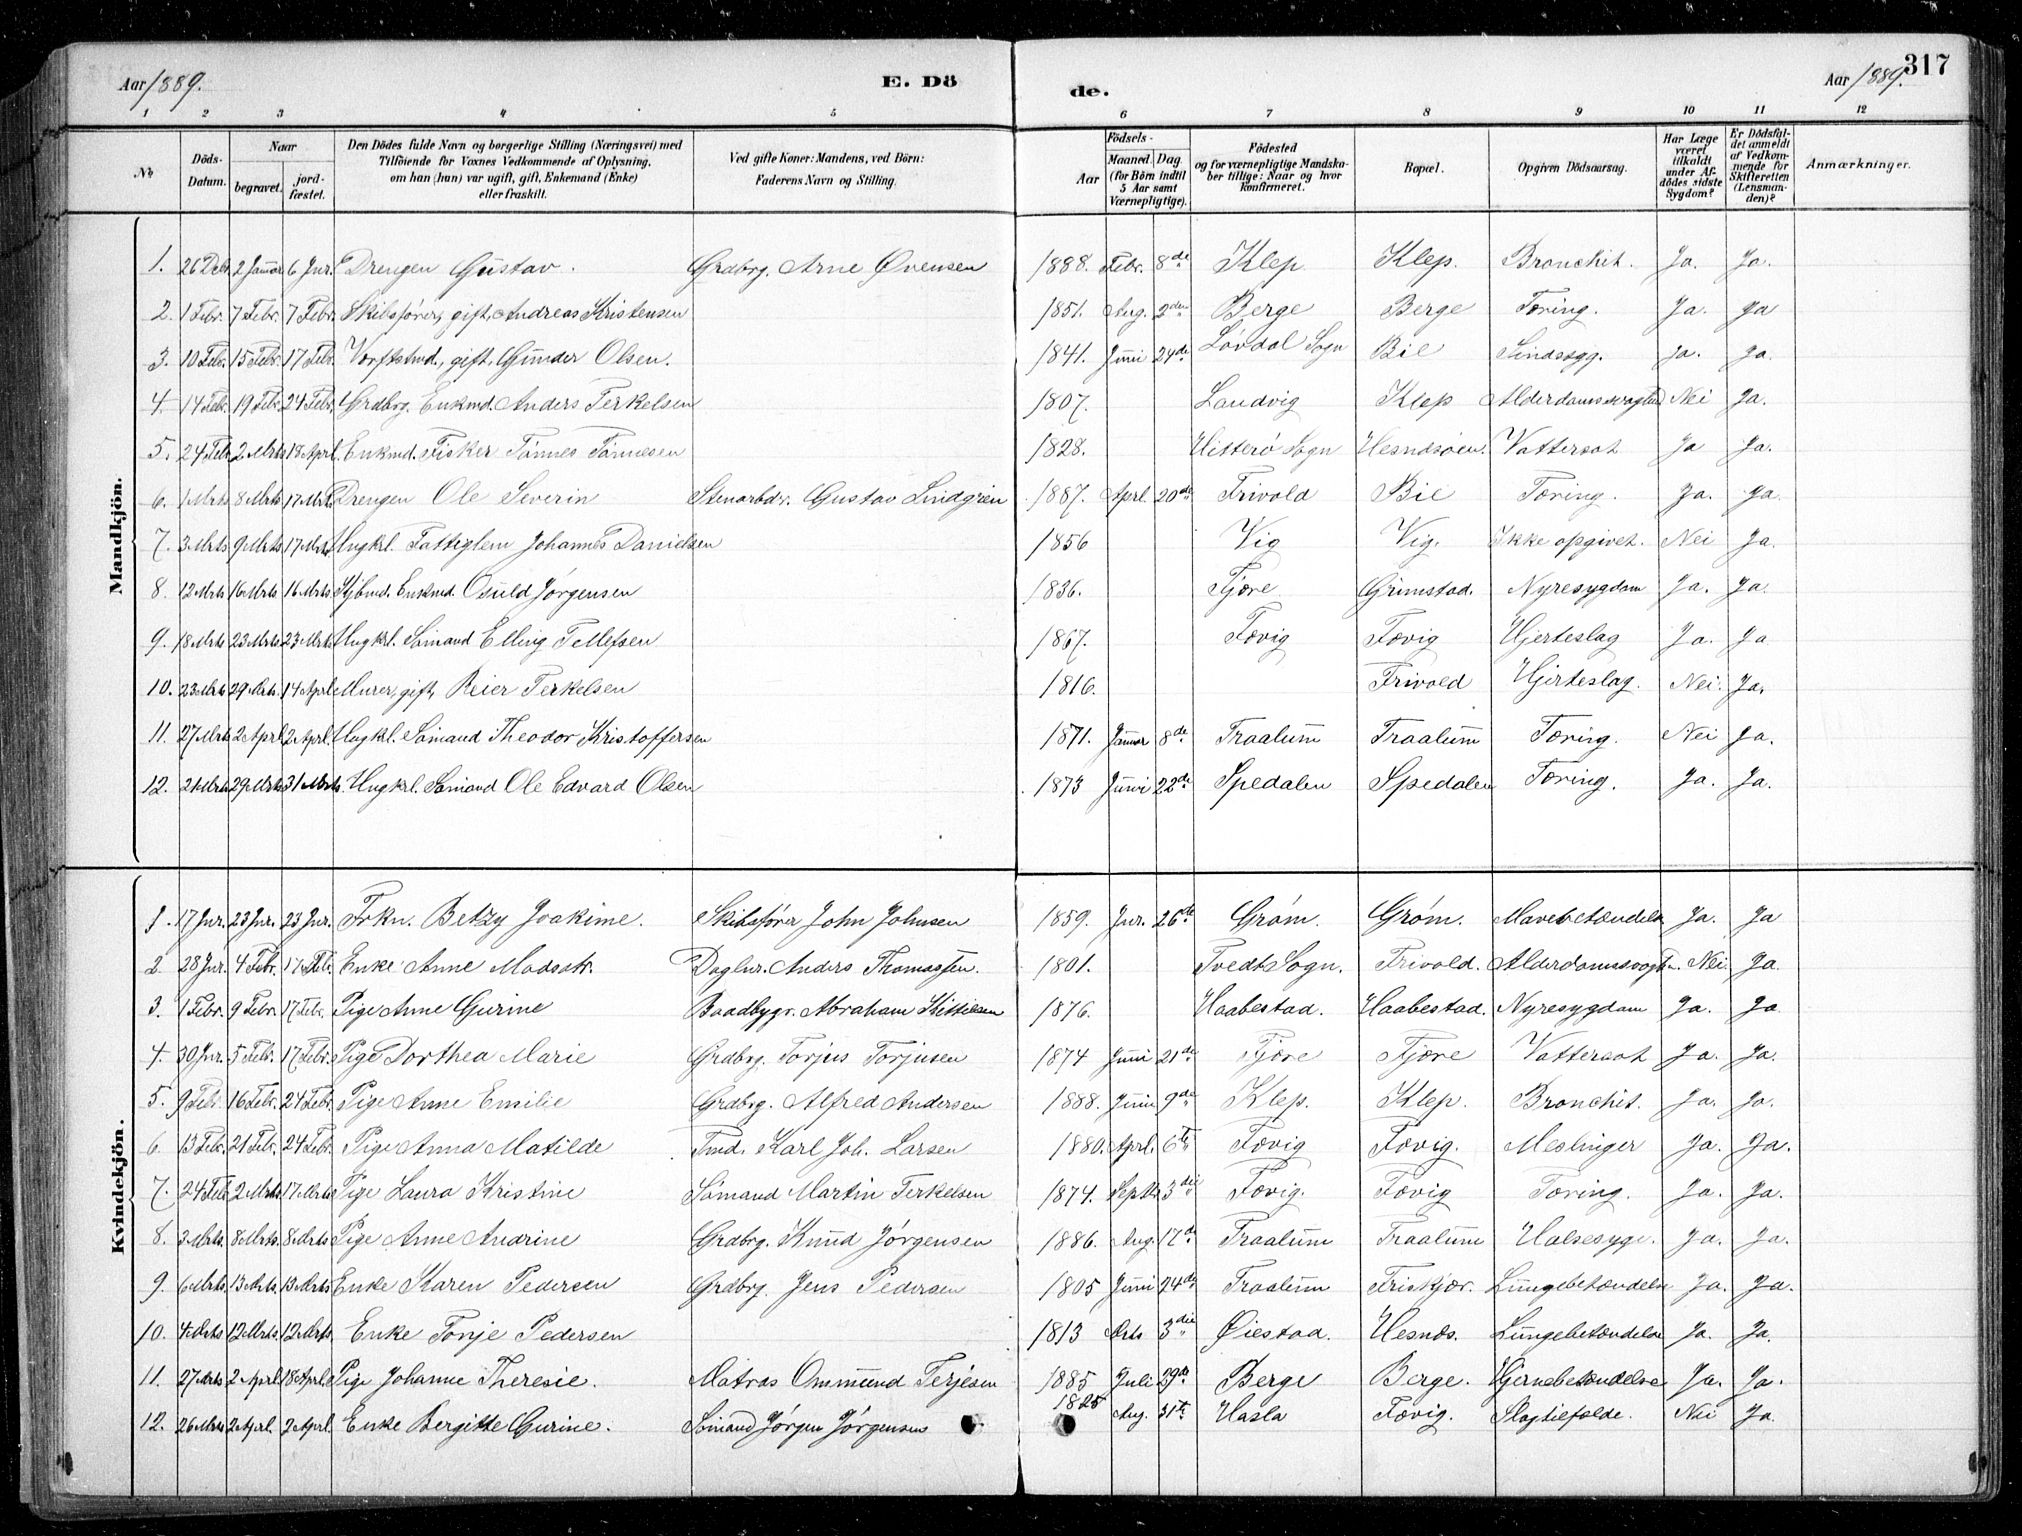 Aar 1889. E. Dö de. Aar 1889. 317
1 2 3 4 5 6 7 8 9 10 11 12
No | Döds-Datum. | Naar begravet. | jordfæstet. | Den Dödes fulde Navn og borgerlige Stilling (Næringsvei) med Tilföiende for Voxnes Vedkommende af Oplysning, om han (hun) var ugift, gift, Enkemand (Enke) eller fraskilt. | Ved gifte Koner: Mandens, ved Börn: Faderens Navn og Stilling. | Födsels- Aar | Maaned. Dag. (for Börn indtil 5 Aar samt Værnepligtige). | Födested og for værnepligtige Mandskaber tillige: Naar og hvor konfirmeret. | Bopæl. | Opgiven Dödsaarsag. | Har Læge været tilkaldt under Afdödes sidste Sygdom? | Er Dödsfaldet anmeldt af Vedkommende for Skifteretten (Lensmanden)? | Anmærkninger.
Mandkjön.
1. 26 Debr. 2 Januar 6 Jnr. Drengen Gustav. Grdbrg. Arne Øvensen 1888. Febr. 8de Klep Klep. Bronchit. Ja. Ja.
2. 1 Febr. 7 Febr. 7 Febr. Skibsfører, gift, Andreas Kristensen 1851. Aug. 2den Berge Berge Tæring. Ja. Ja
3. 10 Febr. 15 Febr. 17 Febr. Værftstmd., gift, Gunder Olsen. 1841. Juni 24de Løvdal Sogn Bie Sindssyg. Ja. Ja.
4. 14 Febr. 19 Febr. 24 Febr. Grdbrg. Enkmd. Anders Terkelsen 1807. Landvig Klep Alderdomssvaghed Nei Ja.
5. 24 Febr. 2 Mrts 18 Aprl. Enkmd. Fisker Tønnes Tønnesen 1828. Hitterø Sogn Hesnesøen. Vattersot Ja Ja.
6. 1 Mrts 8 Mrts 17 Mrts Drengen Ole Severin Stenarbdr. Gustav Lindgren 1887. Aprl. 20de Frivold Bie Tæring. Ja. Ja.
7. 3 Mrts 9 Mrts 17 Mrts Ungkrl. Fattiglem Johannes Danielsen 1856 Vig Vig. Ikke opgivet. Nei Ja.
8. 12 Mrts 16 Mrts 16 Mrts Kjbmd. Enkmd. Osuld Jørgensen 1836. Fjære Grimstad. Nyresygdom Ja. Ja.
9. 18 Mrts 23 Mrts 23 Mrts Ungkrl. Sømand Elling Tellefsen 1867. Fævig Fævig Hjerteslag Ja. Ja
10. 23 Mrts 29 Mrts. 14 Aprl Murer, gift, Reier Terkelsen 1816. Frivold Hjerteslag. Nei. Ja.
11. 27 Mrts 2 Aprl. 2 Aprl. Ungkrl. Sømand Theodor Kristoffersen 1871. Januar 8de Traalum Traalum Tæring. Nei Ja.
12. 21 Mrts 29 Mrts 31 Mrts. Ungkrl. Sømand Ole Edvard Olsen 1873 Juni 22de Spedalen Spedalen Tæring. Ja. Ja.
Kvindekjön.
1. 17 Jnr. 23 Jnr. 23 Jnr. Frkn. Betzy Joakime. Skibsfører John Johnsen 1859. Jnr. 26te Grøm. Grøm. Mavebetændelse Ja. Ja
2 28 Jnr. 4 Febr. 17 Feb. Enke Anne Madsdtr. Daglnr. Anders Thomassen. 1801. Tvedt Sogn. Frivold. Alderdomssvagh. Nei Ja.
3. 1 Febr. 9 Febr. 17 Febr. Pige Anne Gurine Baadbygr. Abraham Kittelsen 1876. Haabestad. Haabestad. Nyresygdom Ja. Ja
4. 30 Jnr. 5 Febr. 17 Febr. Pige Dorthea Marie Grdbrg. Torjus Torjusen 1874 Juni 21de Fjære Fjære Vattersot Ja. Ja.
5. 9 Febr. 16 Febr. 24 Febr. Pige Anne Emilie Grdbrg. Alfred Andersen 1888. Juni 9de Klep. Klep. Bronchit. Ja. Ja.
6. 13 Febr. 21 Febr. 24 Febr. Pige Anna Matilde Tmd. Karl Joh. Larsen 1880. Aprl. 6te Fævig Fævig. Meslinger Ja. Ja.
7. 24 Feb 2 Mrts 17 Mrts Pige Laura Kristine Sømand Martin Terkelsen 1874. Septb 3die Fævig. Fævig Tæring. Ja. Ja.
8. 3 Mrts. 8 Mrts. 8 Mrts Pige Anne Andrine Grdbrg. Knud Jørgensen 1886. Aug. 17de Traalum Traalum Halsesyge. Ja. Ja.
9. 6 Mrts. 13 Mrts. 13 Mrts Enke Karen Pedersen Grdbrg. Jens Pedersen 1805 Juni 24de Traalum Friskjær. Lungebetændelse Ja. Ja.
10. 4 Mrts 12 Mrts. 12 Mrts. Enke Tonje Pedersen 1813 Mrts 3die Øiestad. Hesnæs. Lungebetændelse Ja. Ja.
11. 27 Mrts 2 Aprl 18 Aprl. Pige Johanne Theresie. Matros Ommund Terjesen 1885 Juli 29de Berge Berge. Hjernebetændelse Ja. Ja.
12. 26 Mrts 2 Aprl. 2 Aprl. Enke Bergitte Gurine. Sømand Jørgen Jørgensen 1825 Aug. 31te Hasla Fævig. Slagtilfælde. Nei Ja.